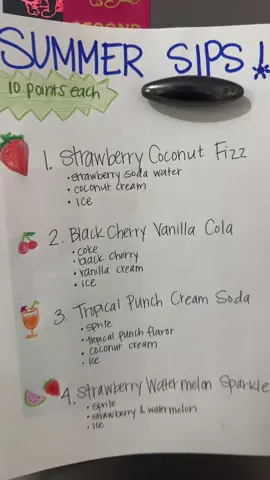 SECOND
SUMMER SIPS!
10 points each
1. Strawberry Coconut Fizz
• strawberry soda water
• coconut cream
• ice
2. Black Cherry Vanilla Cola
• coke
• black cherry
• vanilla cream
• ice
3. Tropical Punch Cream Soda
• sprite
• tropical punch flavor
• coconut cream
• ice
4. Strawberry Watermelon Sparkle
• sprite
• strawberry & watermelon
• ice